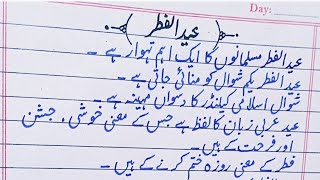 Day:
عید الفطر
عید الفطر مسلمانوں کا ایک اہم تہوار ہے ۔
عید الفطر یکم شوال کو منائی جاتی ہے ۔
شوال اسلامی کیلنڈر کا دسواں مہینہ ہے ۔
عید عربی زبان کا لفظ ہے جس کے معنی خوشی ، جشن
اور فرحت کے ہیں ۔
فطر کے معنی روزہ ختم کرنے کے ہیں ۔